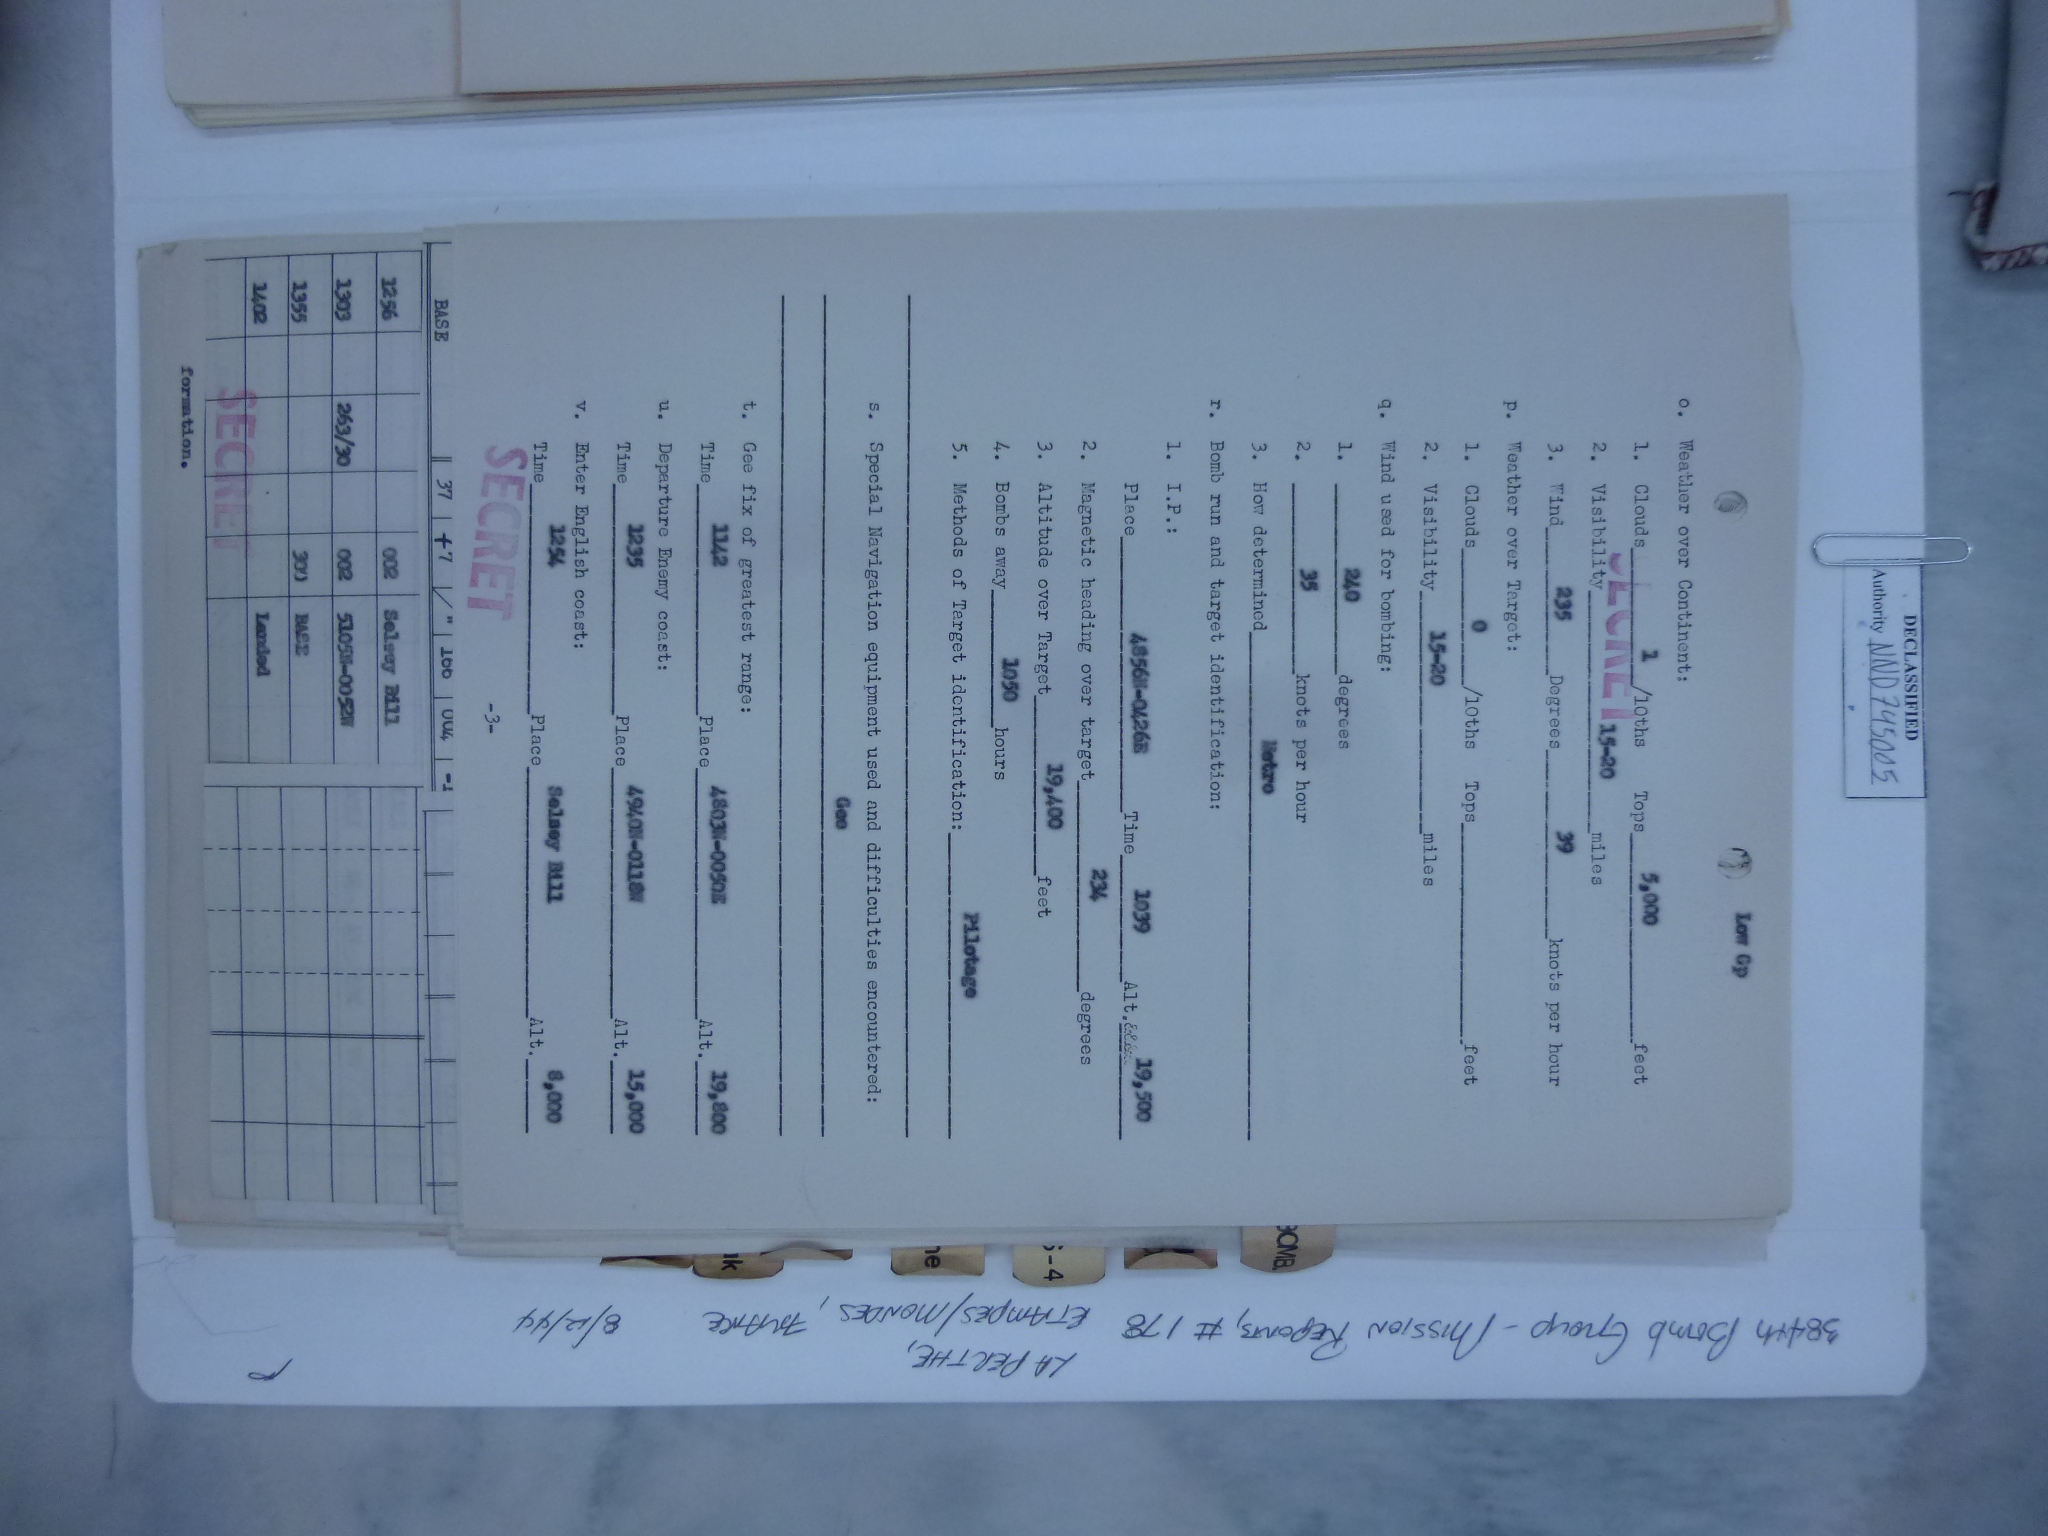 DECLASSIFIED
Authority NND 745005
Low Gp
SECRET
o. Weather over Continent:
1. Clouds 1 /10ths Tops 5,000 feet
2. Visibility 15-20 miles
3. Wind 235 Degrees 39 knots per hour
p. Weather over Target:
1. Clouds 0 /10ths Tops feet
2. Visibility 15-20 miles
q. Wind used for bombing:
1. 240 degrees
2. 35 knots per hour
3. How determined Metro
r. Bomb run and target identification:
1. I.P.:
Place 4856N-0426E Time 1039 Alt. 19,500
2. Magnetic heading over target 234 degrees
3. Altitude over Target 19,400 feet
4. Bombs away 1050 hours
5. Methods of Target identification: Pilotage
s. Special Navigation equipment used and difficulties encountered:
Gee
t. Gee fix of greatest range:
Time 1142 Place 4803N-0050E Alt. 19,800
u. Departure Enemy coast:
Time 1235 Place 4940N-0118W Alt. 15,000
v. Enter English coast:
Time 1254 Place Selsey Bill Alt. 8,000
SECRET
-3-
BASE 37 +7 " 100 004 -1
1256 002 Selsey Bill
1303 263/30 002 5105N-0052W
1355 BASE
1402 Landed
SECRET
formation.
BOMB.
S-4
ne
k
384th Bomb Group - Mission Reports, # 178 ETAMPES/MONDES, FRANCE 8/12/44
LA PERTHE,